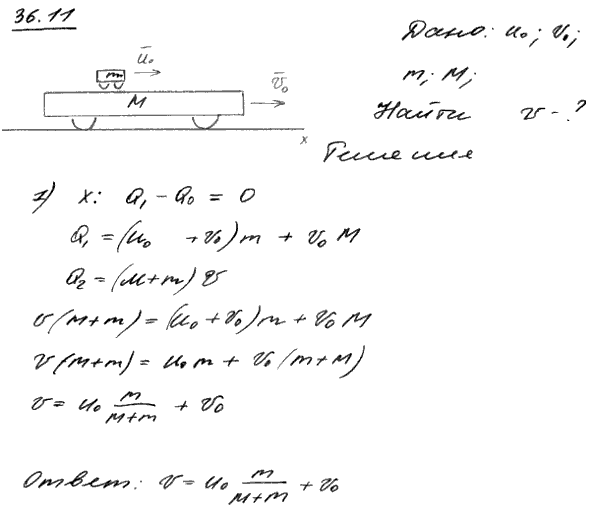 36.11
Дано: u₀; v₀;
m; M;
Найти v - ?
Решение
m u̅₀
M v̅₀
x
1) x: Q₁ - Q₀ = 0
Q₁ = (u₀ + v₀)m + v₀ M
Q₂ = (M+m) v
v(M+m) = (u₀ + v₀)m + v₀ M
v(M+m) = u₀ m + v₀ (m+M)
v = u₀ m/(M+m) + v₀
Ответ: v = u₀ m/(M+m) + v₀